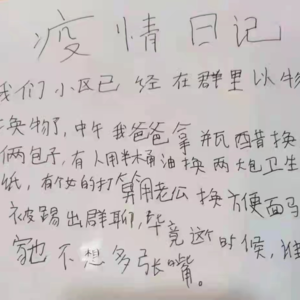 疫情日记
我们小区已经在群里以物
换物了,中午我爸爸拿并瓦醋换
俩包子,有人用半木甬油换两大包卫生
纸,有个女的打算用老瓜换方便面
被踢出群聊,毕竟这个时候,谁
家也不想多张嘴。